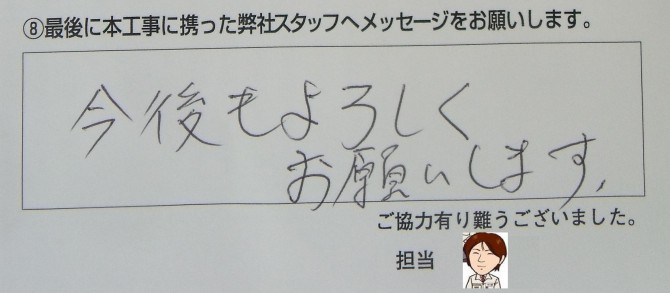 ⑧最後に本工事に携った弊社スタッフへメッセージをお願いします。
今後もよろしく
お願いします。
ご協力有り難うございました。
担当